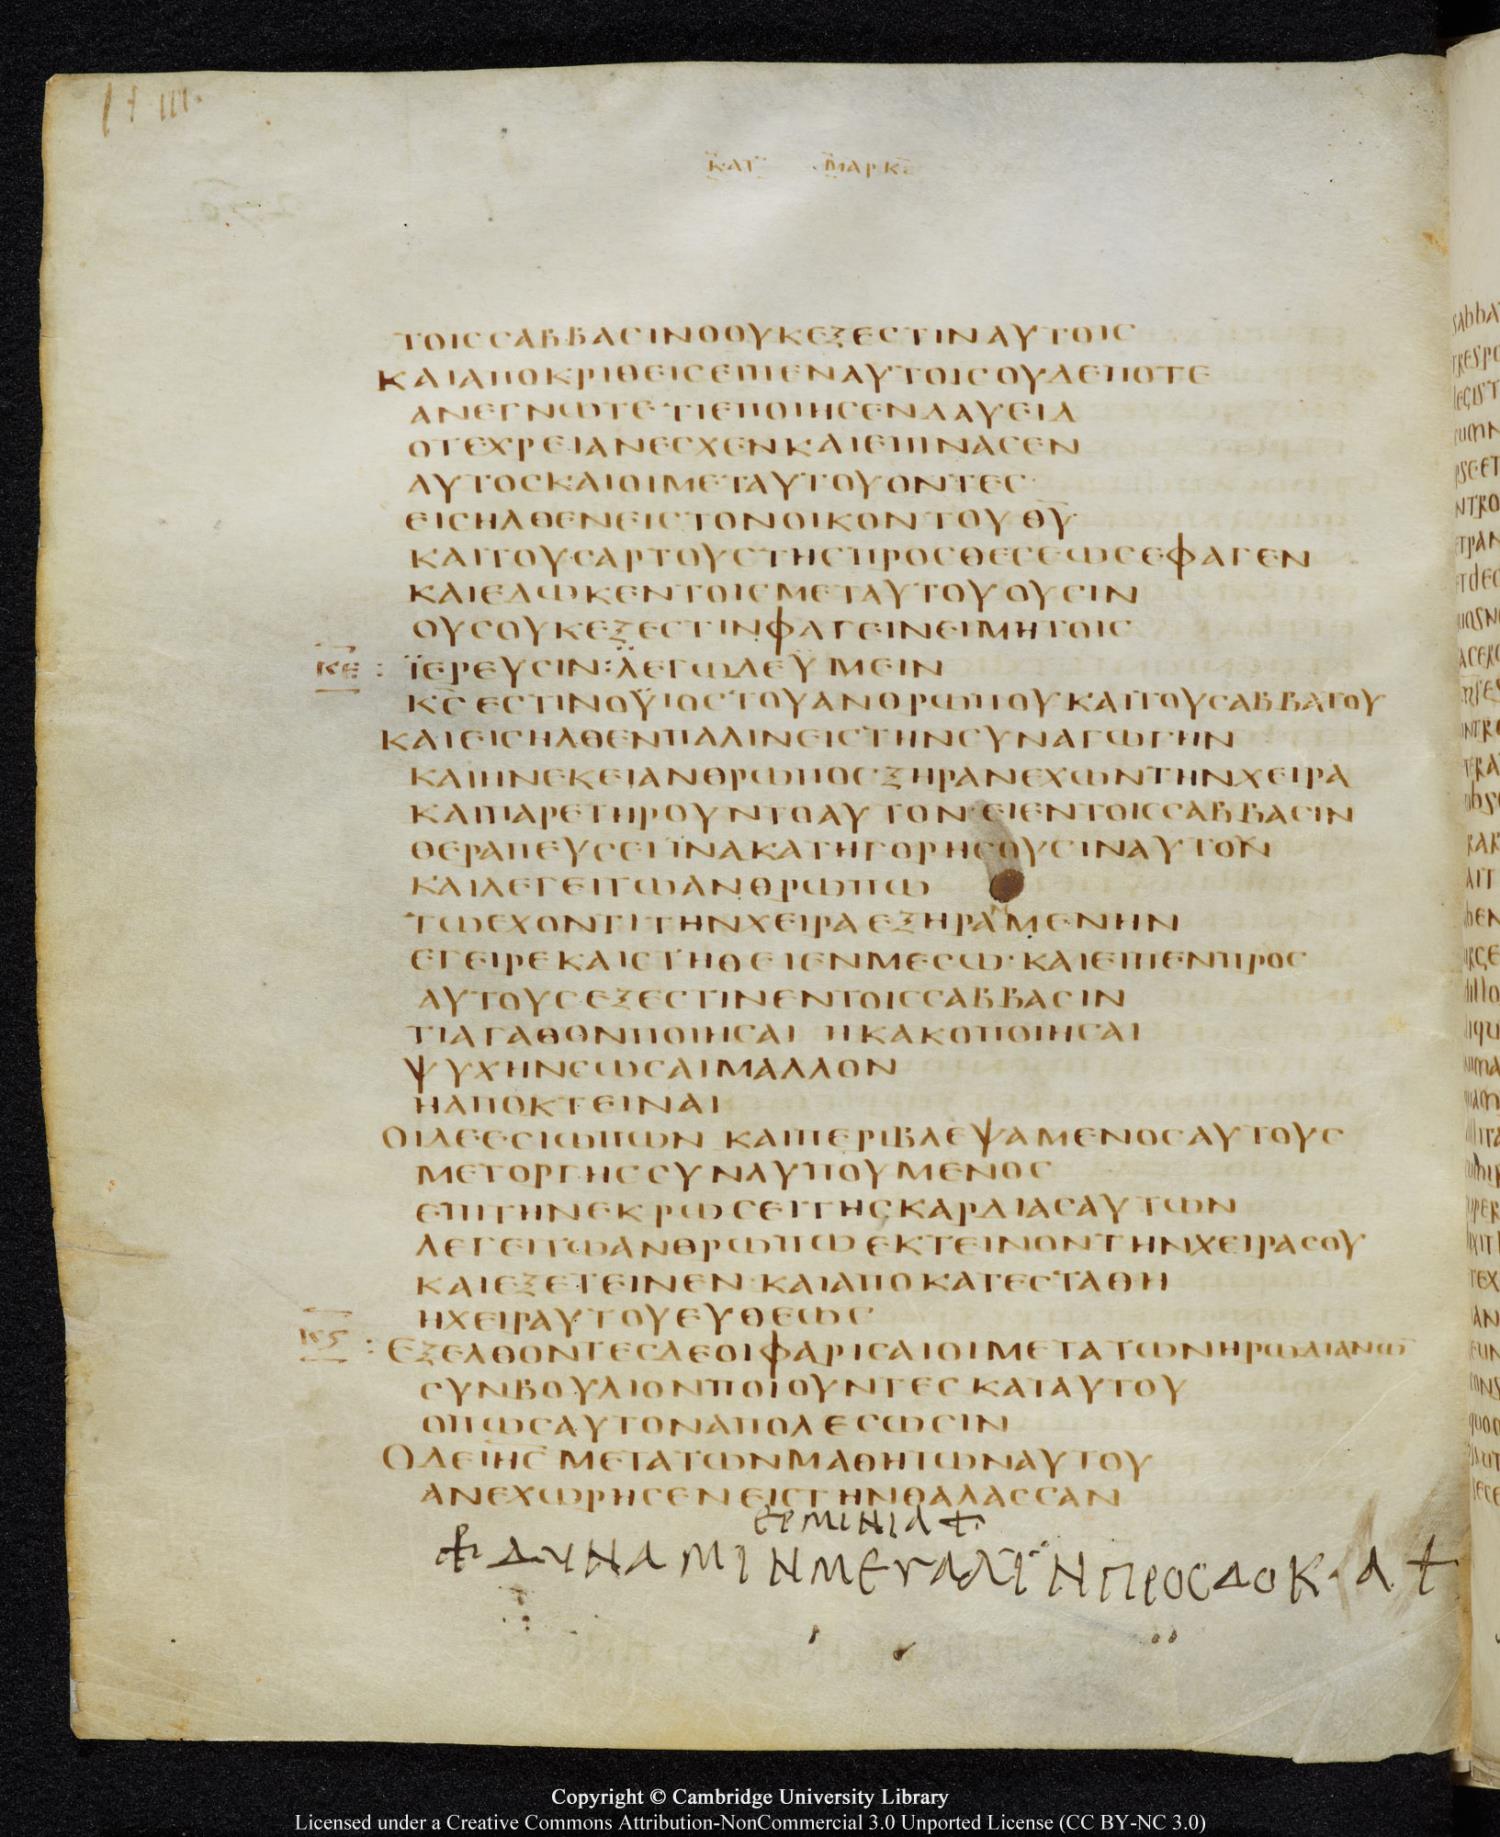 ΚΑΤ ΜΑΡΚ
ΤΟΙΣ ΣΑΒΒΑΣΙΝ Ο ΟΥΚ ΕΞΕΣΤΙΝ ΑΥΤΟΙΣ
ΚΑΙ ΑΠΟΚΡΙΘΕΙΣ ΕΙΠΕΝ ΑΥΤΟΙΣ ΟΥΔΕΠΟΤΕ
ΑΝΕΓΝΩΤΕ ΤΙ ΕΠΟΙΗΣΕΝ ΔΑΥΕΙΔ
ΟΤΕ ΧΡΕΙΑΝ ΕΣΧΕΝ ΚΑΙ ΕΠΙΝΑΣΕΝ
ΑΥΤΟΣ ΚΑΙ ΟΙ ΜΕΤ ΑΥΤΟΥ ΟΝΤΕΣ
ΕΙΣΗΛΘΕΝ ΕΙΣ ΤΟΝ ΟΙΚΟΝ ΤΟΥ ΘΥ
ΚΑΙ ΤΟΥΣ ΑΡΤΟΥΣ ΤΗΣ ΠΡΟΣΘΕΣΕΩΣ ΕΦΑΓΕΝ
ΚΑΙ ΕΔΩΚΕΝ ΤΟΙΣ ΜΕΤ ΑΥΤΟΥ ΟΥΣΙΝ
ΟΥΣ ΟΥΚ ΕΞΕΣΤΙΝ ΦΑΓΕΙΝ ΕΙ ΜΗ ΤΟΙΣ
ΚΕ : ΪΕΡΕΥΣΙΝ : ΛΕΓΩ ΔΕ ΥΜΕΙΝ
ΚΣ ΕΣΤΙΝ Ο ΥΙΟΣ ΤΟΥ ΑΝΘΡΩΠΟΥ ΚΑΙ ΤΟΥ ΣΑΒΒΑΤΟΥ
ΚΑΙ ΕΙΣΗΛΘΕΝ ΠΑΛΙΝ ΕΙΣ ΤΗΝ ΣΥΝΑΓΩΓΗΝ
ΚΑΙ ΗΝ ΕΚΕΙ ΑΝΘΡΩΠΟΣ ΞΗΡΑΝ ΕΧΩΝ ΤΗΝ ΧΕΙΡΑ
ΚΑΙ ΠΑΡΕΤΗΡΟΥΝΤΟ ΑΥΤΟΝ ΕΙ ΕΝ ΤΟΙΣ ΣΑΒΒΑΣΙΝ
ΘΕΡΑΠΕΥΣΕΙ ΪΝΑ ΚΑΤΗΓΟΡΗΣΟΥΣΙΝ ΑΥΤΟΝ
ΚΑΙ ΛΕΓΕΙ ΤΩ ΑΝΘΡΩΠΩ
ΤΩ ΕΧΟΝΤΙ ΤΗΝ ΧΕΙΡΑ ΕΞΗΡΑΜΕΝΗΝ
ΕΓΕΙΡΕ ΚΑΙ ΣΤΗΘΕΙ ΕΝ ΜΕΣΩ · ΚΑΙ ΕΙΠΕΝ ΠΡΟΣ
ΑΥΤΟΥΣ ΕΞΕΣΤΙΝ ΕΝ ΤΟΙΣ ΣΑΒΒΑΣΙΝ
ΤΙ ΑΓΑΘΟΝ ΠΟΙΗΣΑΙ Η ΚΑΚΟΠΟΙΗΣΑΙ
ΨΥΧΗΝ ΣΩΣΑΙ ΜΑΛΛΟΝ
Η ΑΠΟΚΤΕΙΝΑΙ
ΟΙ ΔΕ ΕΣΙΩΠΩΝ ΚΑΙ ΠΕΡΙΒΛΕΨΑΜΕΝΟΣ ΑΥΤΟΥΣ
ΜΕΤ ΟΡΓΗΣ ΣΥΝΛΥΠΟΥΜΕΝΟΣ
ΕΠΙ ΤΗ ΝΕΚΡΩΣΕΙ ΤΗΣ ΚΑΡΔΙΑΣ ΑΥΤΩΝ
ΛΕΓΕΙ ΤΩ ΑΝΘΡΩΠΩ ΕΚΤΕΙΝΟΝ ΤΗΝ ΧΕΙΡΑ ΣΟΥ
ΚΑΙ ΕΞΕΤΕΙΝΕΝ · ΚΑΙ ΑΠΟΚΑΤΕΣΤΑΘΗ
Η ΧΕΙΡ ΑΥΤΟΥ ΕΥΘΕΩΣ
ΚϚ : ΕΞΕΛΘΟΝΤΕΣ ΔΕ ΟΙ ΦΑΡΙΣΑΙΟΙ ΜΕΤΑ ΤΩΝ ΗΡΩΔΙΑΝΩ
ΣΥΝΒΟΥΛΙΟΝ ΠΟΙΟΥΝΤΕΣ ΚΑΤ ΑΥΤΟΥ
ΟΠΩΣ ΑΥΤΟΝ ΑΠΟΛΕΣΩΣΙΝ
Ο ΔΕ ΙΗΣ ΜΕΤΑ ΤΩΝ ΜΑΘΗΤΩΝ ΑΥΤΟΥ
ΑΝΕΧΩΡΗΣΕΝ ΕΙΣ ΤΗΝ ΘΑΛΑΣΣΑΝ
ΕΡΜΙΝΙΑ +
+ ΔΥΝΑΜΙΝ ΜΕΓΑΛΙΝ ΠΡΟΣΔΟΚΑ +
Copyright © Cambridge University Library
Licensed under a Creative Commons Attribution-NonCommercial 3.0 Unported License (CC BY-NC 3.0)